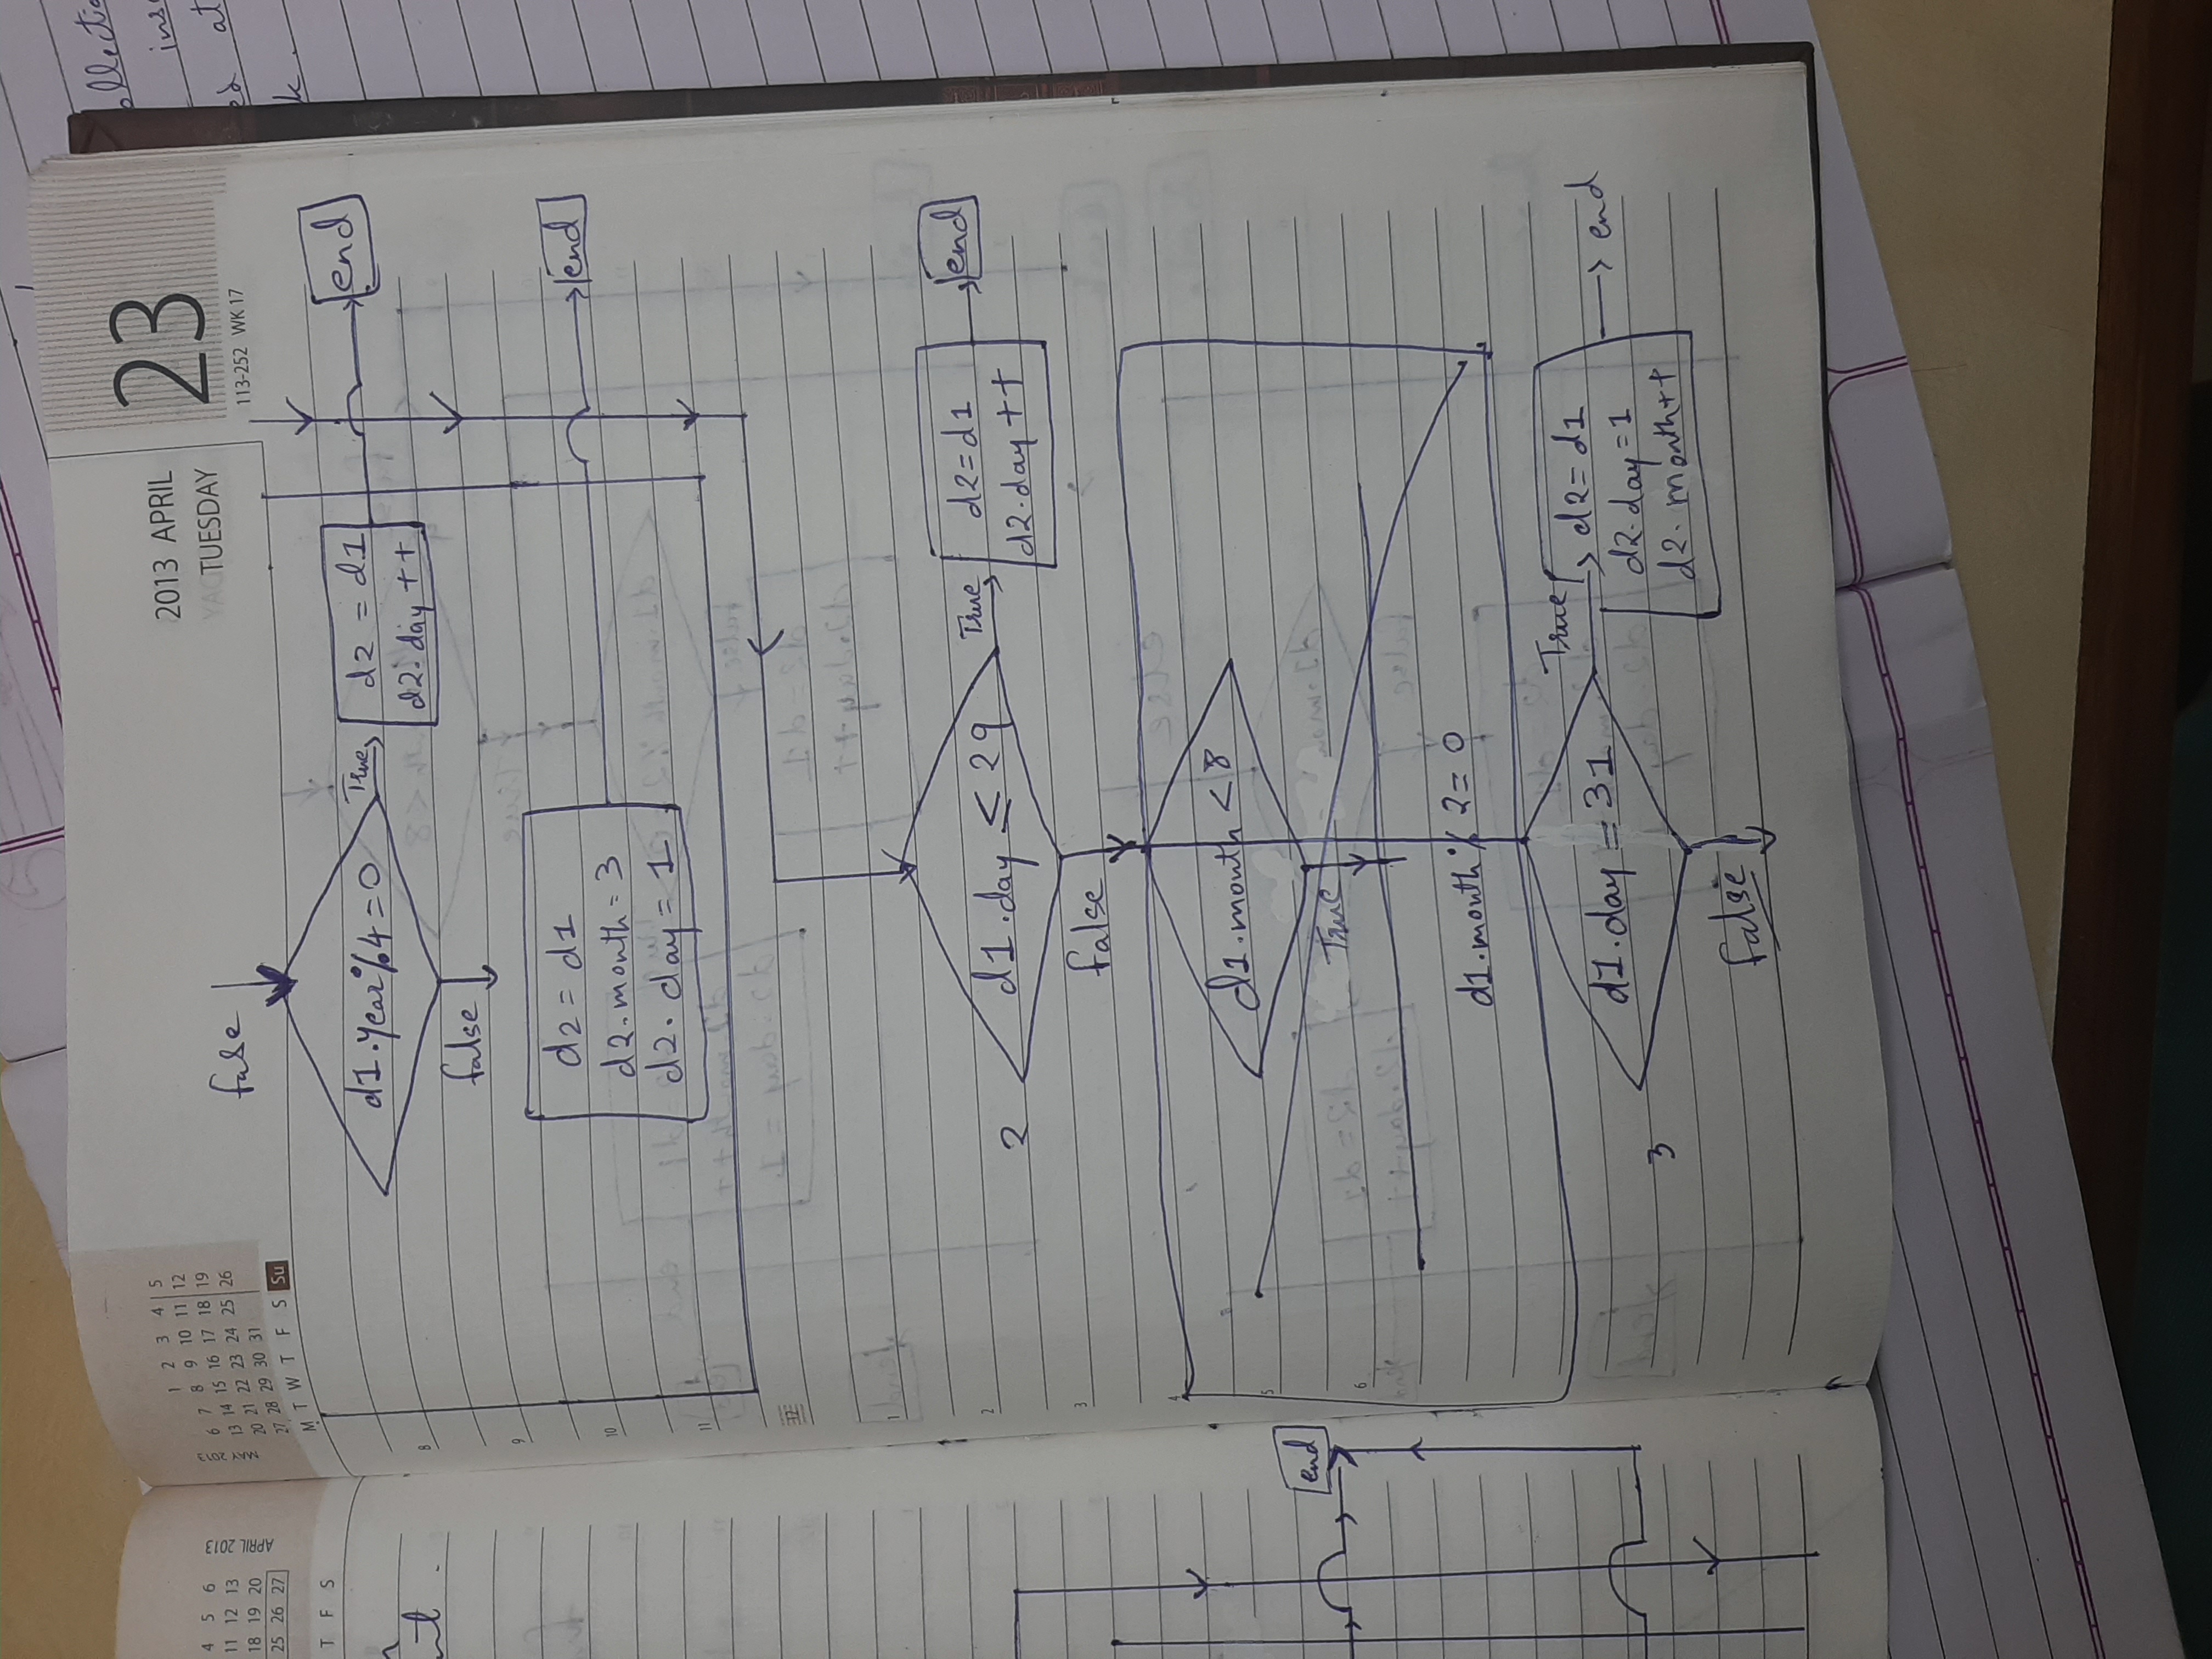 4 5 6
11 12 13
18 19 20
25 26 27
APRIL 2013
T F S
MAY 2013
1 2 3 4 5
6 7 8 9 10 11 12
13 14 15 16 17 18 19
20 21 22 23 24 25 26
27 28 29 30 31
M T W T F S Su
2013 APRIL
TUESDAY
23
113-252 WK 17
false
d1.year%4=0
True
d2 = d1
d2.day++
end
8
false
9
d2 = d1
d2.month = 3
d2.day = 1
end
10
11
12
1
2
2
d1.day ≤ 29
True
d2=d1
d2.day++
end
3
false
4
d1.month < 8
5
end
True
6
d1.month % 2 = 0
3
d1.day = 31
True
d2= d1
d2.day=1
d2.month++
end
false
at
k.